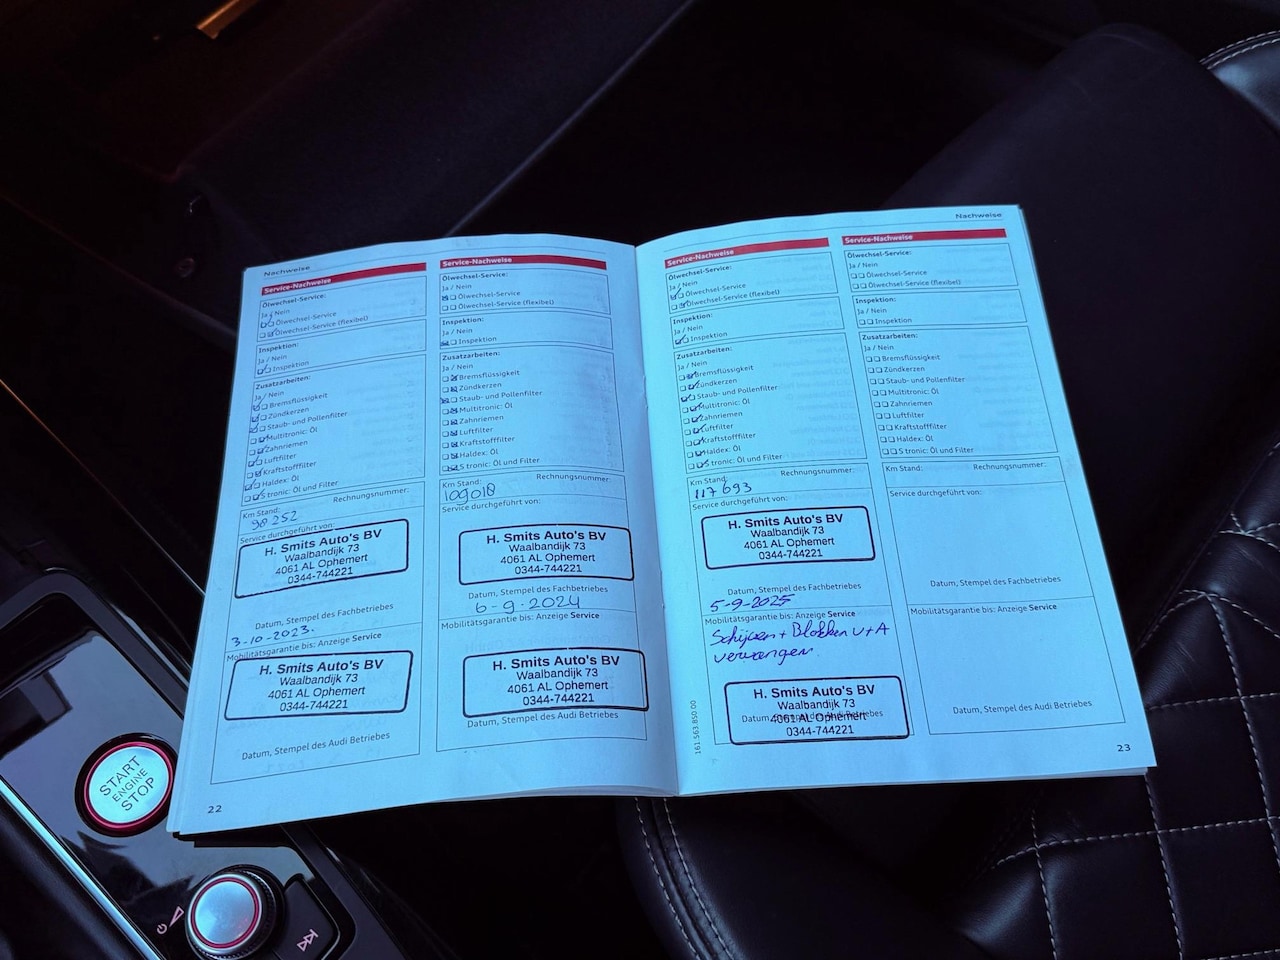 Nachweise
Service-Nachweise
Ölwechsel-Service:
Ja / Nein
Ölwechsel-Service
Ölwechsel-Service (flexibel)
Inspektion:
Ja / Nein
Inspektion
Zusatzarbeiten:
Ja / Nein
Bremsflüssigkeit
Zündkerzen
Staub- und Pollenfilter
Multitronic: Öl
Zahnriemen
Luftfilter
Kraftstofffilter
Haldex: Öl
S tronic: Öl und Filter
Km Stand: Rechnungsnummer:
98252
Service durchgeführt von:
H. Smits Auto's BV
Waalbandijk 73
4061 AL Ophemert
0344-744221
Datum, Stempel des Fachbetriebes
3-10-2023.
Mobilitätsgarantie bis: Anzeige Service
H. Smits Auto's BV
Waalbandijk 73
4061 AL Ophemert
0344-744221
Datum, Stempel des Audi Betriebes
22
Service-Nachweise
Ölwechsel-Service:
Ja / Nein
Ölwechsel-Service
Ölwechsel-Service (flexibel)
Inspektion:
Ja / Nein
Inspektion
Zusatzarbeiten:
Ja / Nein
Bremsflüssigkeit
Zündkerzen
Staub- und Pollenfilter
Multitronic: Öl
Zahnriemen
Luftfilter
Kraftstofffilter
Haldex: Öl
S tronic: Öl und Filter
Km Stand: Rechnungsnummer:
109018
Service durchgeführt von:
H. Smits Auto's BV
Waalbandijk 73
4061 AL Ophemert
0344-744221
Datum, Stempel des Fachbetriebes
6-9-2024
Mobilitätsgarantie bis: Anzeige Service
H. Smits Auto's BV
Waalbandijk 73
4061 AL Ophemert
0344-744221
Datum, Stempel des Audi Betriebes
Service-Nachweise
Ölwechsel-Service:
Ja / Nein
Ölwechsel-Service
Ölwechsel-Service (flexibel)
Inspektion:
Ja / Nein
Inspektion
Zusatzarbeiten:
Ja / Nein
Bremsflüssigkeit
Zündkerzen
Staub- und Pollenfilter
Multitronic: Öl
Zahnriemen
Luftfilter
Kraftstofffilter
Haldex: Öl
S tronic: Öl und Filter
Km Stand: Rechnungsnummer:
117693
Service durchgeführt von:
H. Smits Auto's BV
Waalbandijk 73
4061 AL Ophemert
0344-744221
Datum, Stempel des Fachbetriebes
5-9-2025
Mobilitätsgarantie bis: Anzeige Service
Schijven + Blokken V+A
vervangen.
H. Smits Auto's BV
Waalbandijk 73
4061 AL Ophemert
0344-744221
Datum, Stempel des Audi Betriebes
161.563.850.00
Nachweise
Service-Nachweise
Ölwechsel-Service:
Ja / Nein
Ölwechsel-Service
Ölwechsel-Service (flexibel)
Inspektion:
Ja / Nein
Inspektion
Zusatzarbeiten:
Ja / Nein
Bremsflüssigkeit
Zündkerzen
Staub- und Pollenfilter
Multitronic: Öl
Zahnriemen
Luftfilter
Kraftstofffilter
Haldex: Öl
S tronic: Öl und Filter
Km Stand: Rechnungsnummer:
Service durchgeführt von:
Datum, Stempel des Fachbetriebes
Mobilitätsgarantie bis: Anzeige Service
Datum, Stempel des Audi Betriebes
23
START
ENGINE
STOP